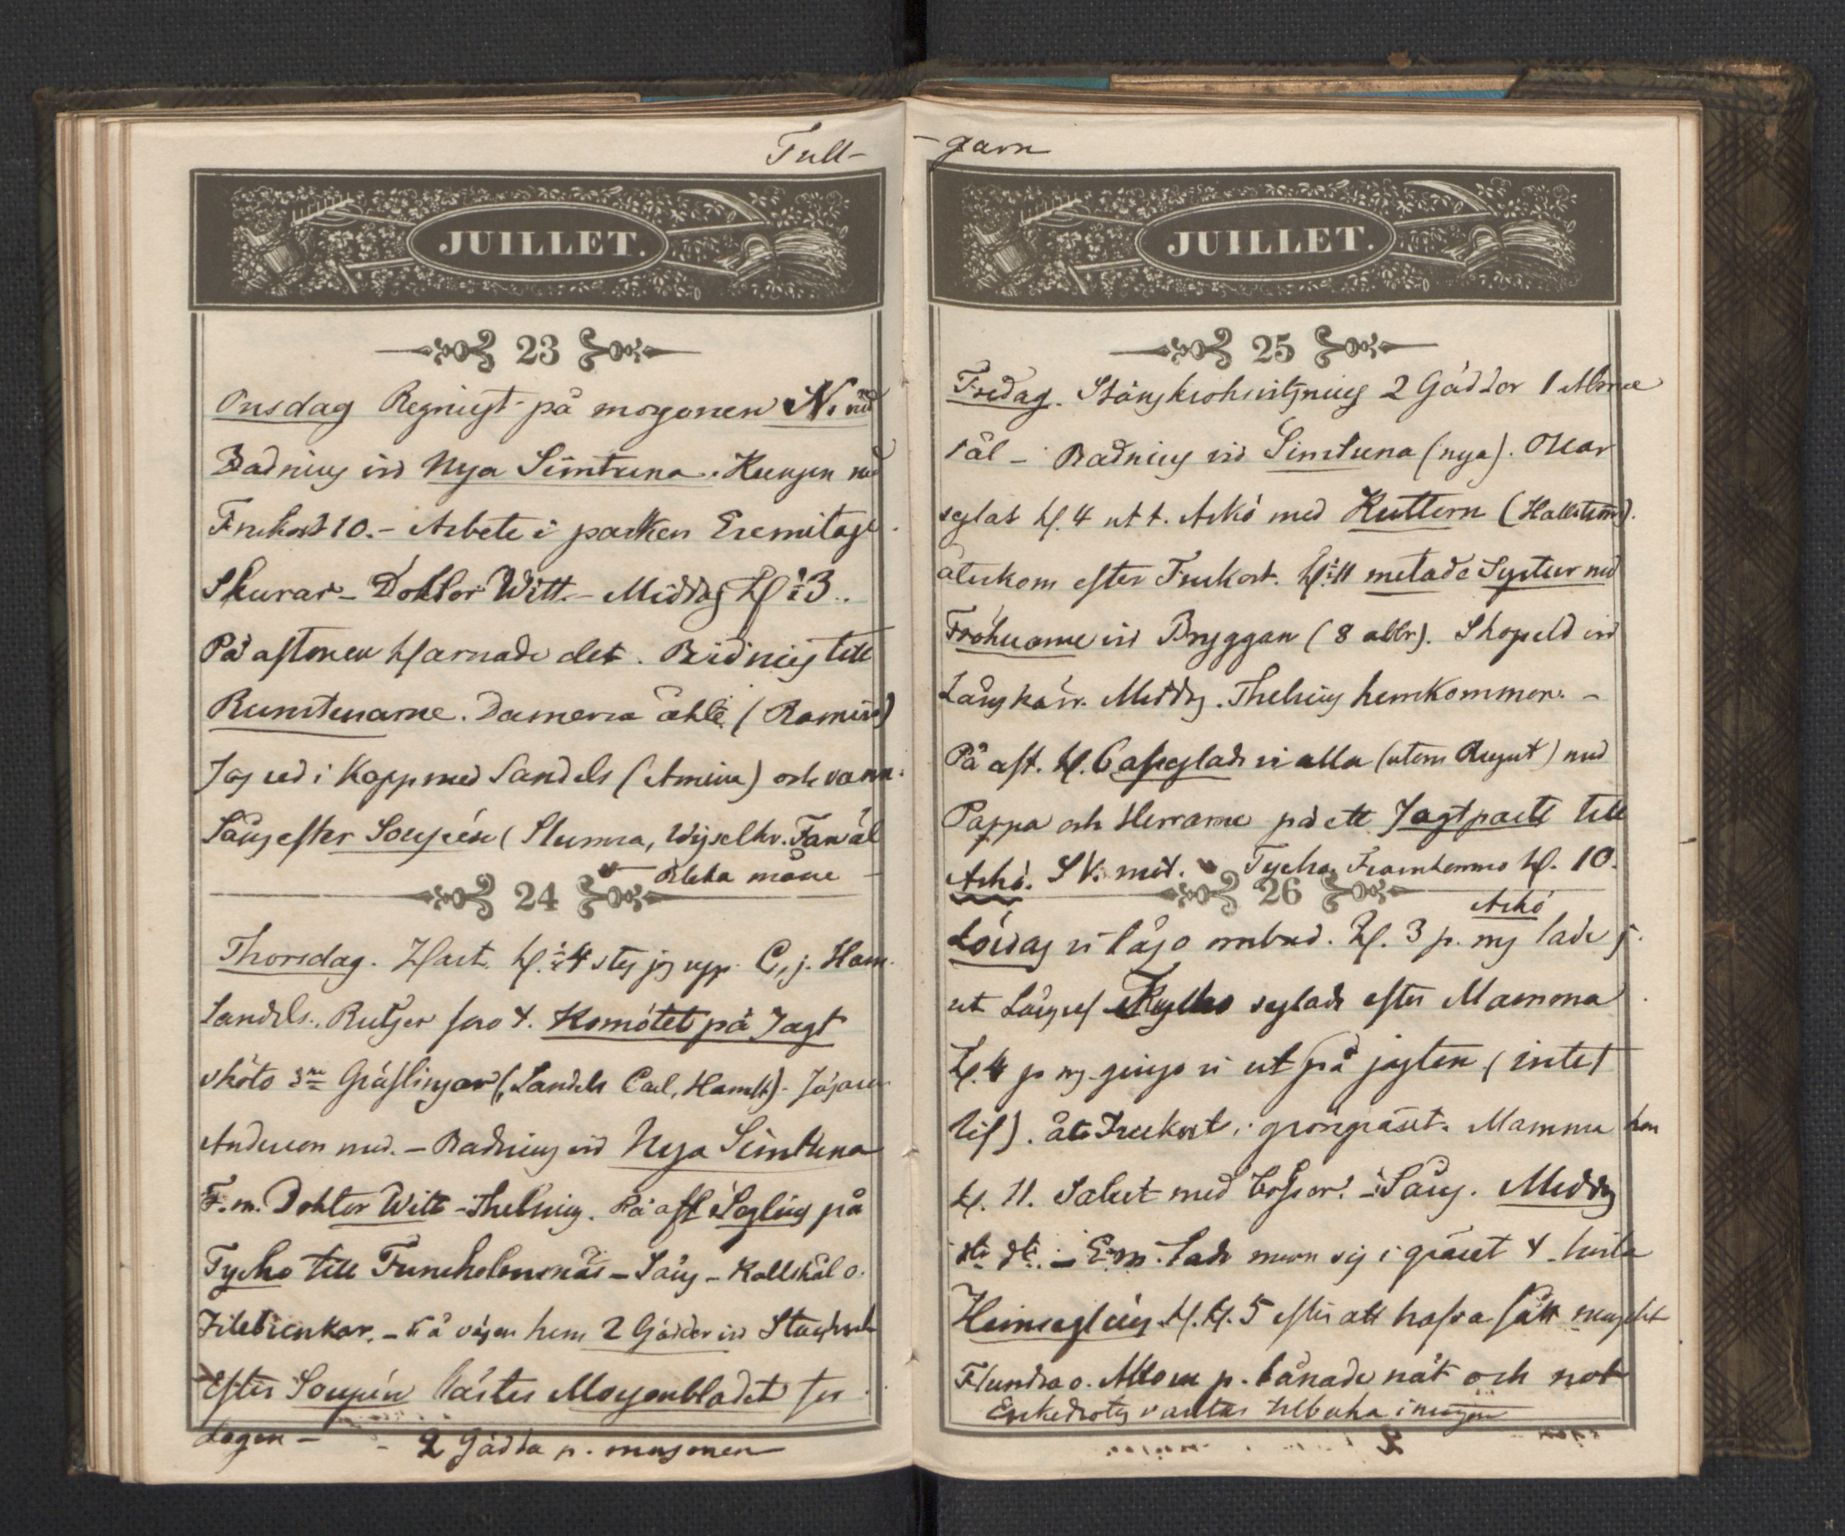 Full-
JUILLET.
23
Onsdag Regnigt på morgonen N. vid
Badning vid Nya Simtuna. Kungen red
Frukost 10. - Arbete i parken Eremitage.
Skurar - Doktor Witt. - Middag Kl ½ 3.
På aftonen klarnade det. Ridning till
Runstenarne. Damerna åkte (Ramiro)
Jag red i Kapp med Sandels (Amina) och vann.
Sång efter Soupéen (Stumma, Wexelkv. Fanäl
Bleka måne
24
Thorsdag. Hast. kl. ½ 4 steg jag upp. C, j. Ham.
Sandels. Rutger foro t. Komötet på Jagt
sköto 3ne Gräflingar (Sandels Carl, Hamilt). Jägaren
Anderson med. - Badning vid Nya Simtuna
F.m. Doktor Witt - Thelning. På aft Segling på
Tycho till Funcholmsnäs - Sång - Kallskål o.
Filebunkar. - På vägen hem 2 Gäddor vid
Efter Soupén lästes Morgonbladet för
dagen - - 2 Gädda p. morgonen
-garn
JUILLET.
25
Fredag. Stångkroksvittjning 2 Gäddor 1 Aborre
1 ål - Badning vid Simtuna (nya). Oscar
seglat kl. 4 ut t. Askö med Kuttern (Hallström).
återkom efter Frukost. Kl. ½ 11 metade Systur med
Fröknarne vid Bryggan (8 abbr). Skogseld vid
Långkärr. Middag. Thelning hemkommen. -
På aft. kl. 6 afseglade vi alla (utom Regnt) med
Pappa och Herrarne på ett Jagtparti till
Askö. SV. med. Tycho. Framkommo kl. 10.
26
Askö
Lördag vi lågo ombord. Kl. 3 p. mg lade j.
ut Långref seglade efter Mamma
Kl. 4 p mg. gingo vi ut på jagten (intet
lif). åt Frukost i gröngräset. Mamma kom
kl. 11. Salut med bössor! - Sång. Middag
dto dto. - E.m. lade man sig i gräset t. hvila
Hemsegling kl. 5 efter att hafva fått mycket
Flundra o. Allom p. lånade nät och not
Enkedrotg väntas tillbaka i morgon